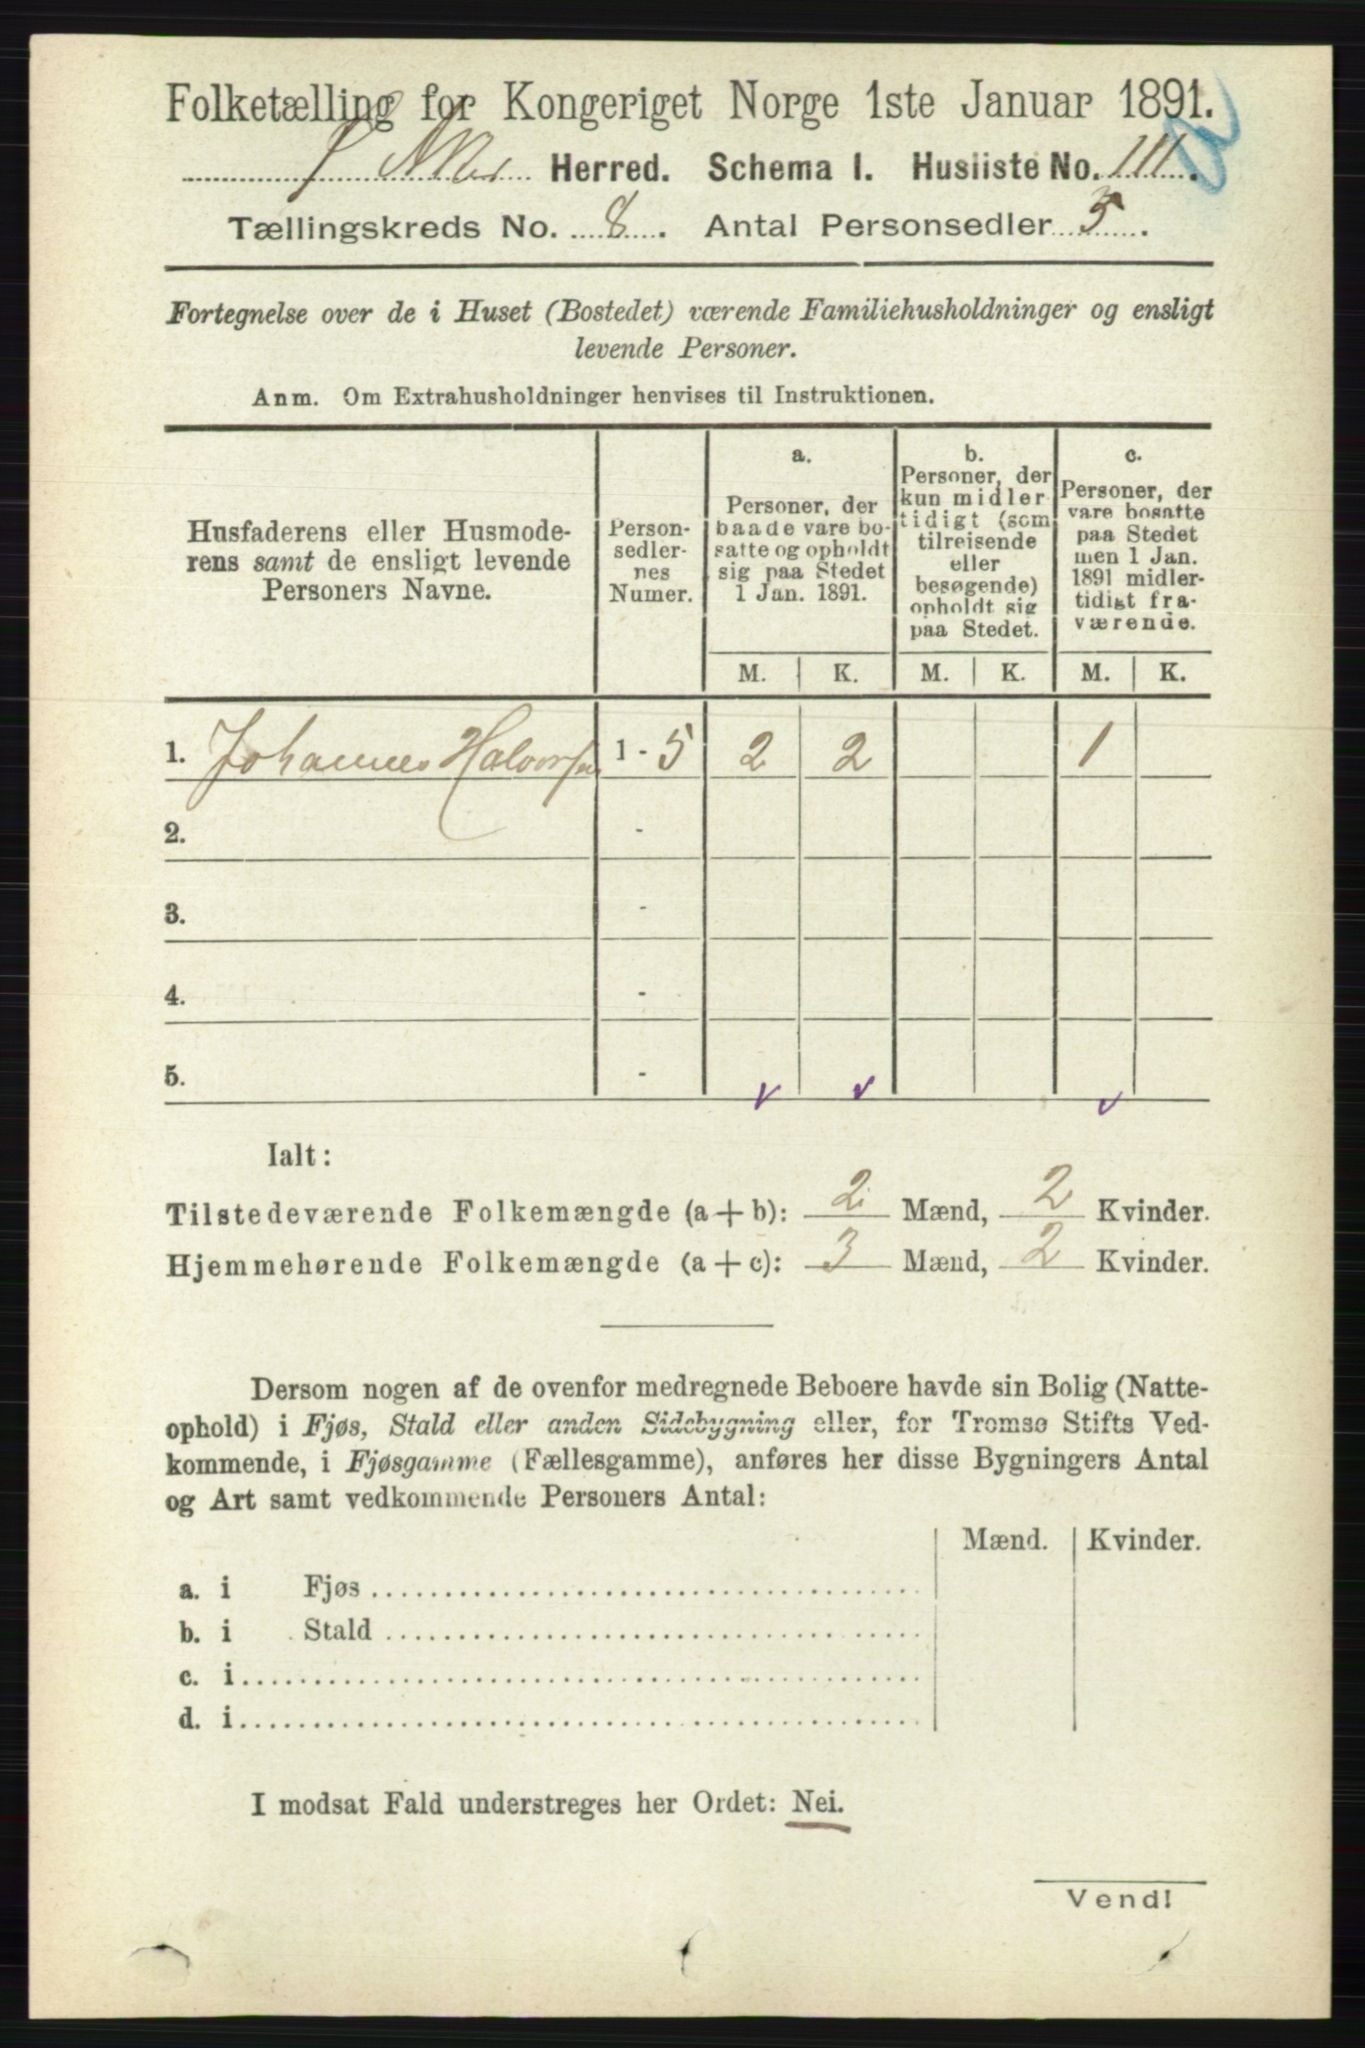 Folketælling for Kongeriget Norge 1ste Januar 1891.
Herred. Schema I. Husliste No. 111.
Tællingskreds No. 8. Antal Personsedler 5.
Fortegnelse over de i Huset (Bostedet) værende Familiehusholdninger og ensligt
levende Personer.
Anm. Om Extrahusholdninger henvises til Instruktionen.
Husfaderens eller Husmode-
rens samt de ensligt levende
Personers Navne.
Person-
sedler-
nes
Numer.
a.
Personer, der
baade vare bo-
satte og opholdt
sig paa Stedet
1 Jan. 1891.
b.
Personer, der
kun midler-
tidigt (som
tilreisende
eller
besøgende)
opholdt sig
paa Stedet.
c.
Personer, der
vare bosatte
paa Stedet
men 1 Jan.
1891 midler-
tidigt fra-
værende.
M. K. M. K. M. K.
1. Johannes Halvorsen 1 - 5 2 2 1
2. -
3. -
4. -
5. -
Ialt:
Tilstedeværende Folkemængde (a + b): 2 Mænd, 2 Kvinder.
Hjemmehørende Folkemængde (a + c): 3 Mænd, 2 Kvinder.
Dersom nogen af de ovenfor medregnede Beboere havde sin Bolig (Natte-
ophold) i Fjøs, Stald eller anden Sidebygning eller, for Tromsø Stifts Ved-
kommende, i Fjøsgamme (Fællesgamme), anføres her disse Bygningers Antal
og Art samt vedkommende Personers Antal:
Mænd. Kvinder.
a. i Fjøs
b. i Stald
c. i
d. i
I modsat Fald understreges her Ordet: Nei.
Vend!